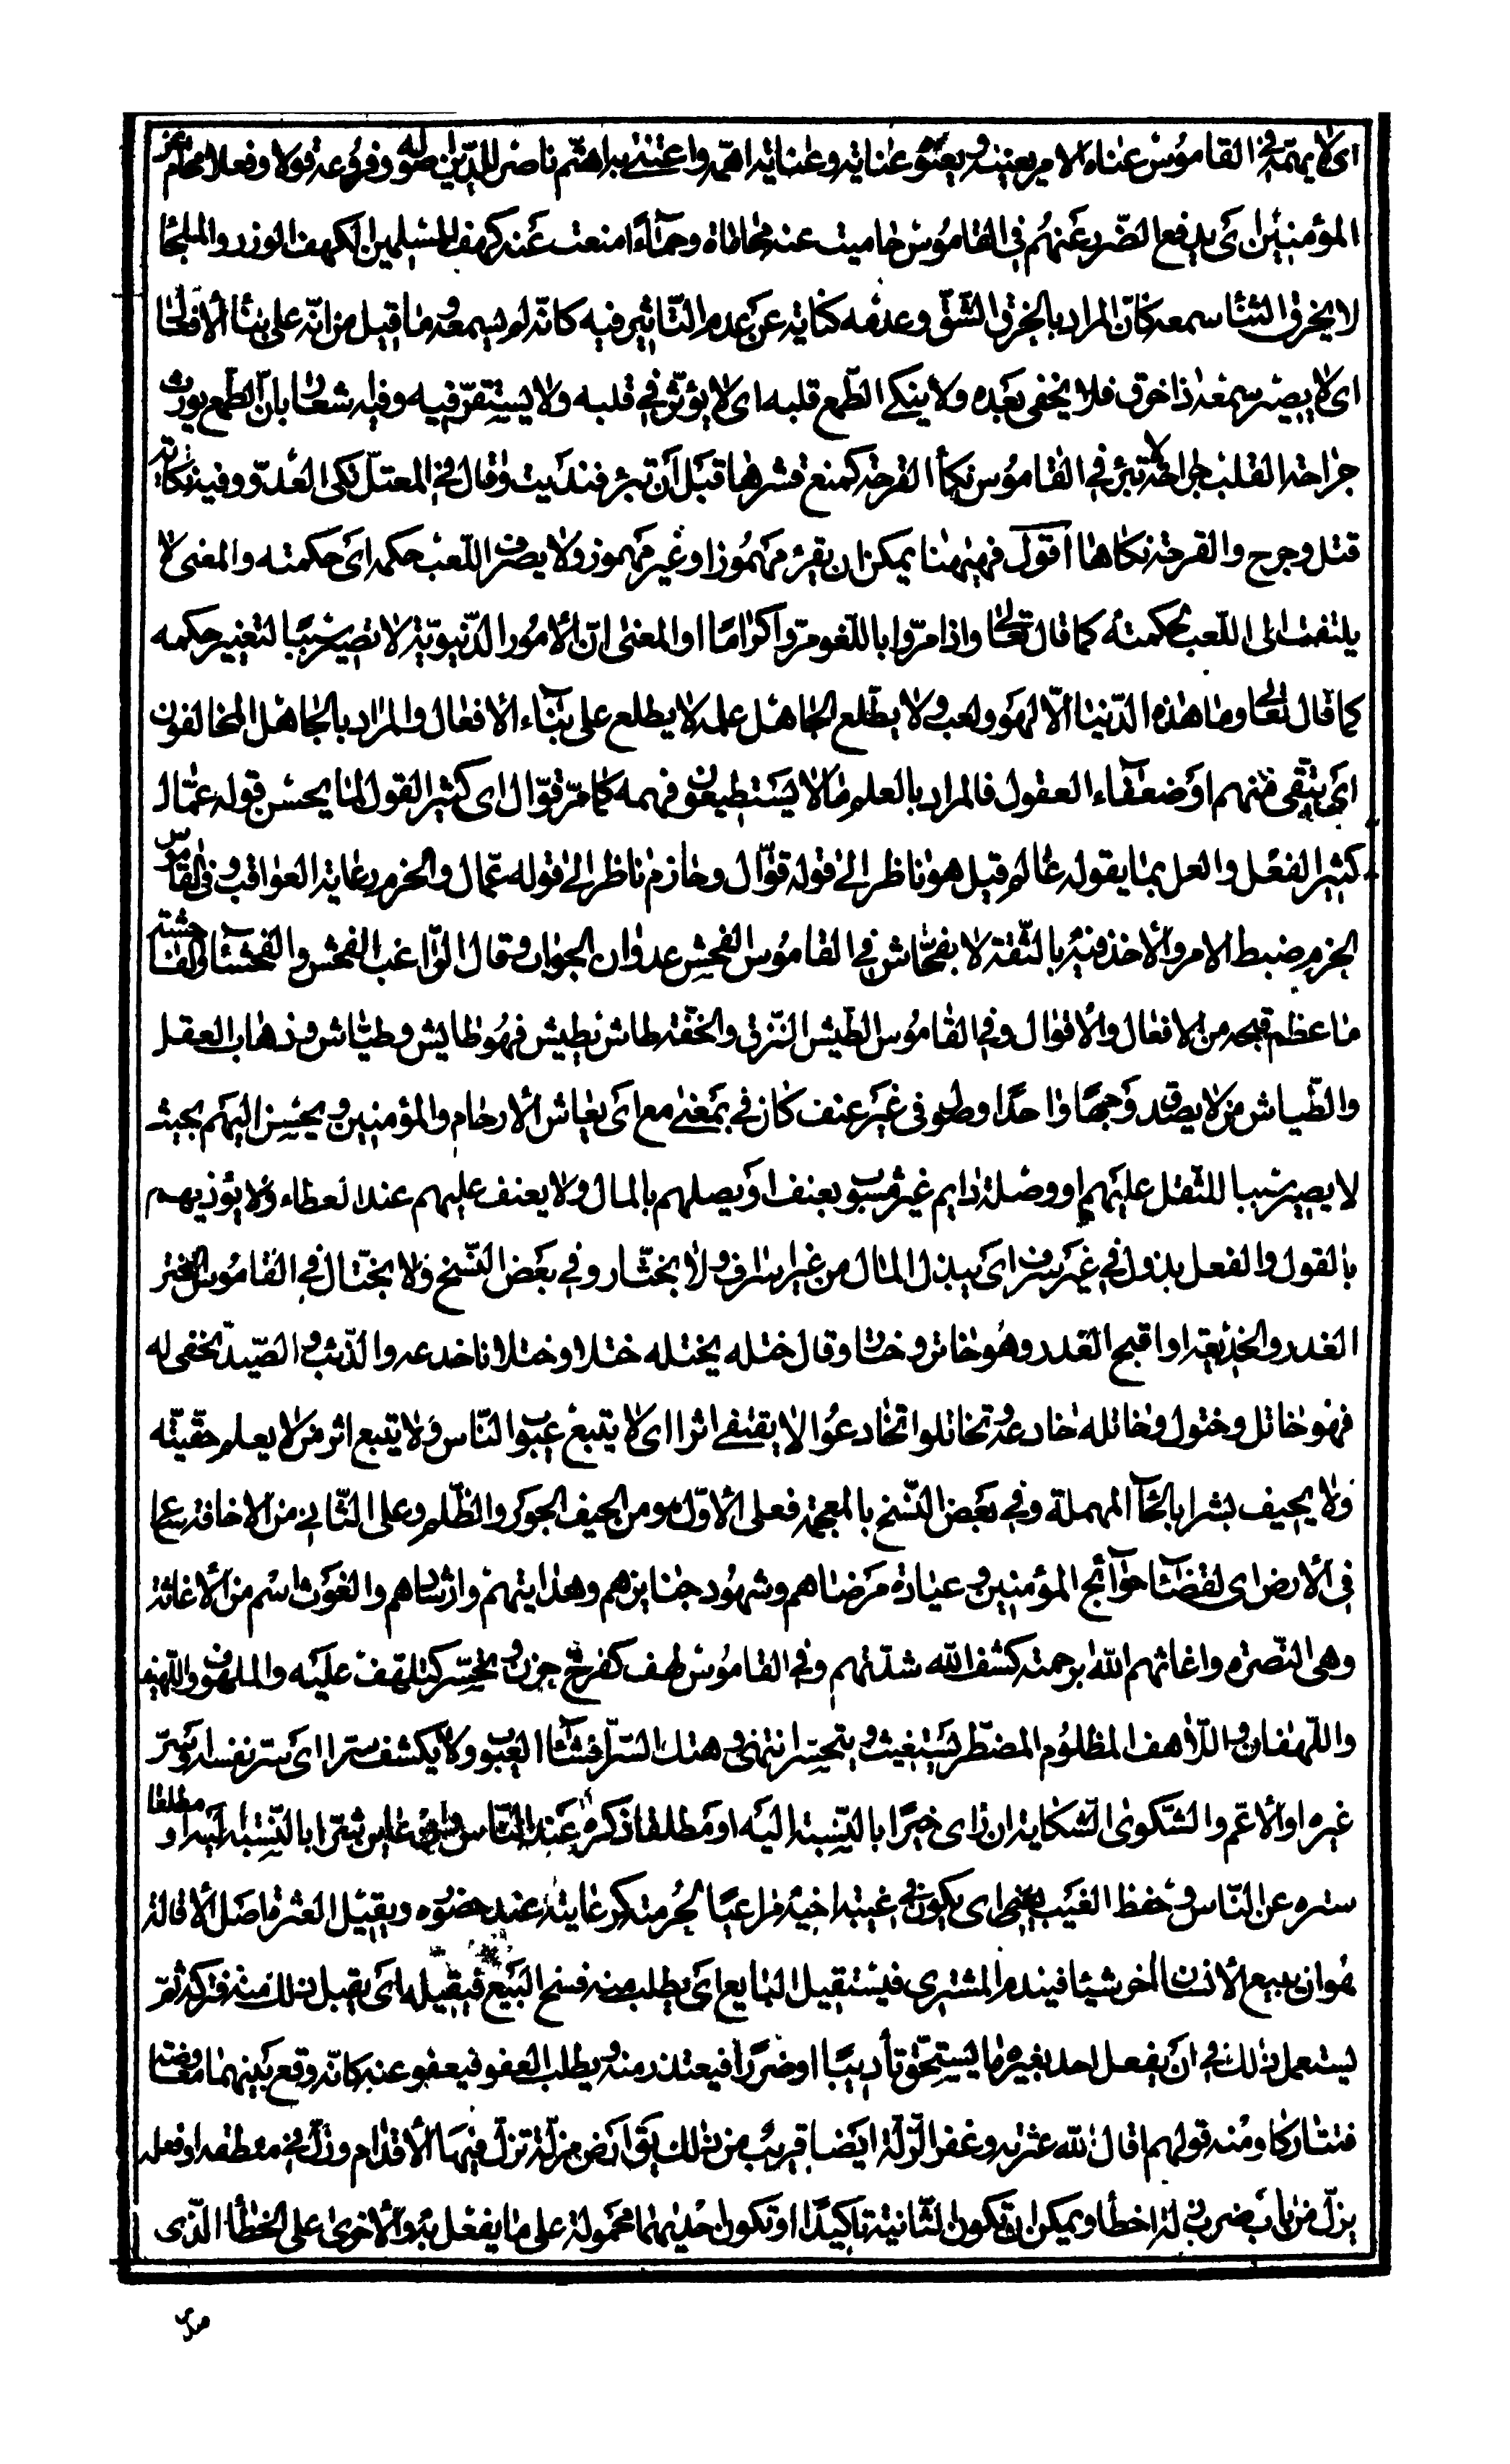 اى لا يهتمّ به فى القاموس عناه الامر يعنيه ويعنوه عناية وعناية اهمّه واعتنى به اهتم ناصر للدّين اصوله وفروعه قولا وفعلا محام عن
المؤمنين اى يدفع الضّرر عنهم فى القاموس حاميت عنه محاماة وحماءً منعت عنه كهف للمسلمين الكهف الوزر والملجا
لا يخرق الثنا سمعه كانّ المراد بالخرق الشّقّ وعدمه كناية عن عدم التّاثير فيه كانّه لم يسمعه وما قيل من انّه على بناء الافعال
اى لا يصير سمعه ذا خرق فلا يخفى بعده ولا ينكى الطّمع قلبه اى لا يؤثّر فى قلبه ولا يستقرّ فيه وفيه شعار بانّ الطّمع يورث
جراحة القلب جراحة لا تبرئ فى القاموس نكأ القرحة كمنع قشرها قبل أن تبرئ فنديت وقال فى المعتلّ نكى العدّو وفيه نكاية
قتل وجرح والقرحة نكاها اقول فههنا يمكن ان يقرء مهموزا وغير مهموز ولا يصرف اللّعب حكمه اى حكمته والمعنى لا
يلتفت الى اللّعب لحكمته كما قال تعالى واذا مرّوا باللّغو مرّوا كراما او المعنى انّ الأمور الدّنيويّة لا تصير سببا لتغيير حكمه
كما قال تعالى وما هذه الدّنيا الّا لهو ولعب ولا يطّلع الجاهل علمه لا يطلع على بناء الافعال والمراد بالجاهل المخالفون
اى يتّقى منهم او ضعفاء العقول فالمراد بالعلم ما لا يستطيعون فهمه كما مرّ قوّال اى كثير القول لما يحسن قوله عمّال
كثير الفعل والعمل بما يقوله عالم قيل هو ناظر الى قوله قوّال وحازم ناظر الى قوله عمّال والحزم رعاية العواقب وفى القاموس
الحزم ضبط الامر والأخذ فيه بالثّقة لا بفحّاش فى القاموس الفحش عدوان الجواب وقال الرّاغب الفحش والفحشاء والفاحشة
ما عظم قبحه من الافعال والأقوال وفى القاموس الطّيش النّزق والخفّة طاش يطيش فهو طايش وطيّاش وذهاب العقل
والطّياش من لا يقصد وجها واحدًا وصول فى غير عنف كان فى بمعنى مع اى يعاشر الأرحام والمؤمنين ويحسن اليهم بحيث
لا يصير سببا للثقل عليهم او وصلة دايم غير مسبوق بعنف او يصلهم بالمال ولا يعنف عليهم عند العطاء ولا يؤذيهم
بالقول والفعل بذول فى غير سرف اى يبذل المال من غير اسراف ولا بختّار وفى بعض النّسخ ولا بختّال فى القاموس الختر
الغدر والخديعة او اقبح الغدر وهو خاتر وختّار وقال ختله يختله ختلا وختلانا خدعه والذّئب الصّيد تخفى له
فهو خاتل وختول وخاتله خادعه وتخاتلوا تخادعوا لا يقتفى اثرا اى لا يتبع عيوب النّاس ولا يتبع اثر من لا يعلم حقّيته
ولا يحيف بشرا بالحاء المهملة وفى بعض النّسخ بالمعجمة فعلى الأوّل هو من الحيف الجور والظّلم وعلى الثّانى من الاخافة ساع
فى الأرض اى لقضاء حوائج المؤمنين وعيادة مرضاهم وشهود جنايزهم وهدايتهم وارشادهم والغوث اسم من الأغاثة
وهى النّصرة واغاثهم اللّه برحمته كشف اللّه شدّتهم وفى القاموس لهف كفرح حزن وتحسّر كتلهّف عليه والملهوف واللّهيف
واللّهفان واللّاهف المظلوم المضطّر يستغيث ويتحسّر انتهى وهتك السّتر افشاء العيوب ولا يكشف سترا اى ستر نفسه او ستر
غيره او الأعّم والشّكوى الشّكاية ان رأى خيرًا بالنّسبة اليه او مطلقا ذكره عند النّاس وان عاين شرّا بالنّسبة اليه او مطلقا
ستره عن النّاس وحفظ الغيب اى يكون فى غيبة اخيه مراعيًا لحرمته كرعايته عند حضوره ويقيل العثرة اصل الأقالة
هو ان يبيع الأنسان الاخر شيئا فيندم المشترى فيستقيل البايع اى يطلب منه فسخ البيع فيقيله اى يقبل ذلك منه فتركه ثمّ
يستعمل ذلك فى ان يفعل احد بغيره ما يستحقّ تأديبًا او ضررًا فيعتذر منه ويطلب العفو فيعفو عنه كانّه وقع بينهما معاوضة
فتتاركا ومنه قولهم اقال اللّه عثرته وغفر الزّلّة ايضا قريب من ذلك يق ارض مزلّة تزلّ فيها الأقدام وزلّ فى منطقه او فعله
يزلّ من باب ضرب زلّة اخطا ويمكن ان تكون الثّانية تاكيدًا او تكون احديهما محمولة على ما يفعل به والأخرى على الخطأ الّذى